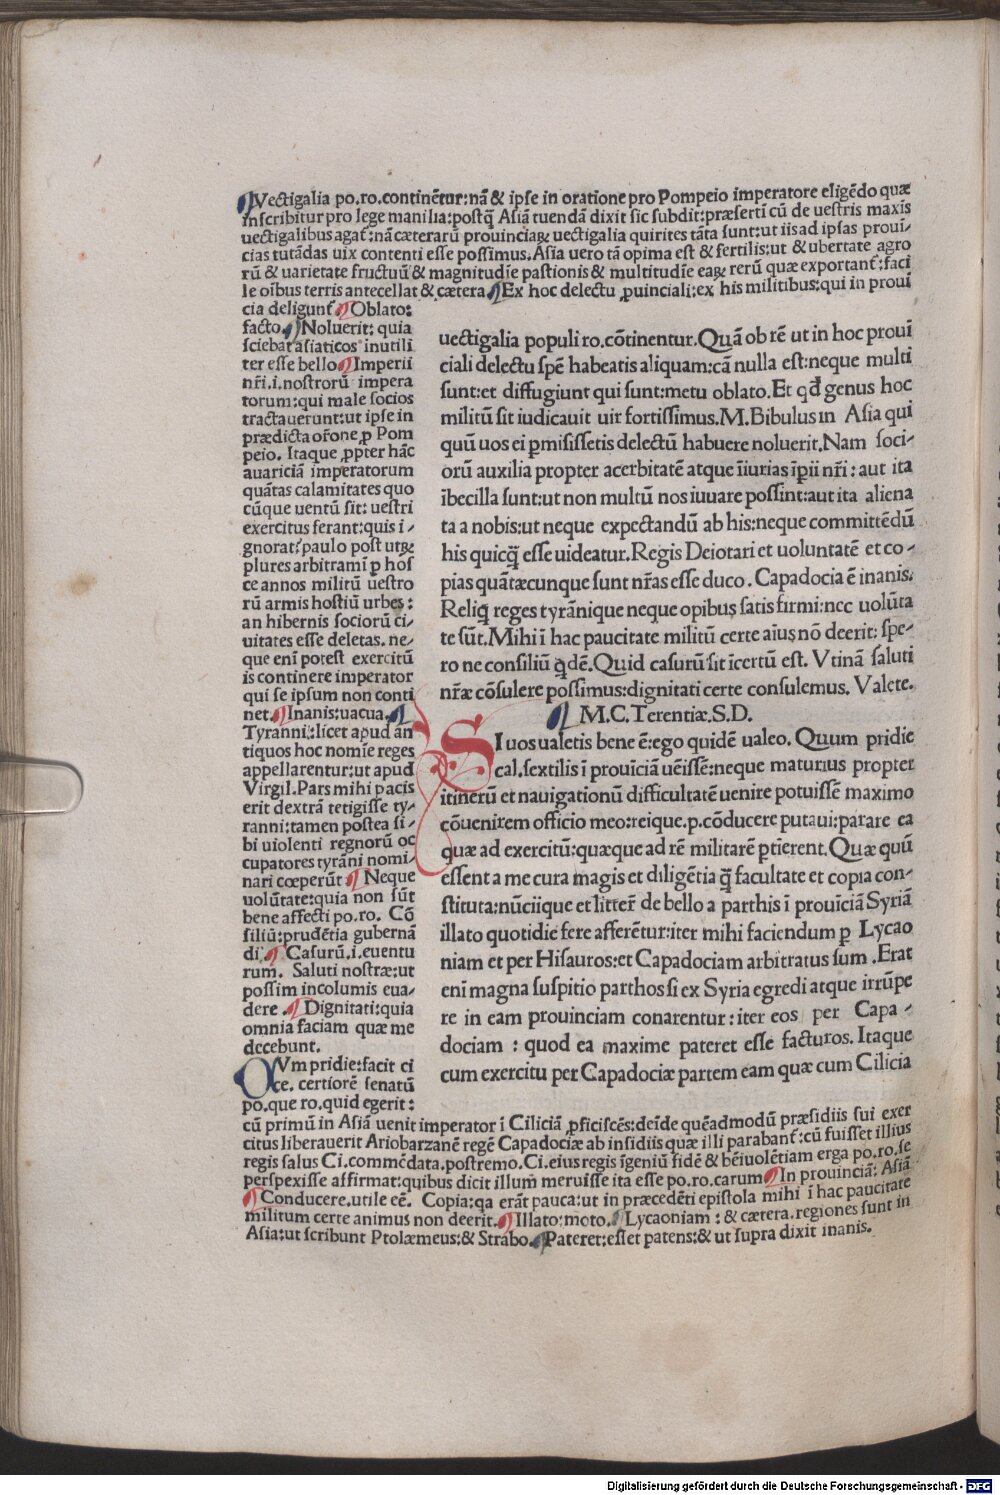 ¶Vectigalia po.ro.continēt̄ur:nā & ipſe in oratione pro Pompeio imperatore eligēdo quæ
inſcribitur pro lege manilia:poſtꝗ̄ Aſiā tuendā dixit ſic ſubdit:præſertī cū de ueſtris maxīs
uectigalibus agat̄:nā cæterarū prouinciaꝝ uectigalia quirites tāta ſunt:ut iis ad ipſas prouī/
cias tutādas uix contenti eſſe poſſimus.Aſia uero tā opima eſt & fertilis:ut & ubertate agro
rū & uarietate fructuū & magnitudīe paſtionis & multitudīe eaꝝ rerū quæ exportant̄:faci
le oībus terris antecellat & cætera.¶Ex hoc delectu ꝓuinciali:ex his militibus:qui in prouī
cia deligunt̄ ¶Oblato:
facto.¶Noluerit: quia
ſciebat aſiaticos inutili
ter eſſe bello ¶Imperii
nr̄i.i.noſtrorū impera
torum:qui male ſocios
tractauerunt:ut ipſe in
prædicta or̄one ꝓ Pom
peio. Itaque ꝓpter hāc
auariciā imperatorum
quātas calamitates quo
cūque uentū ſit: ueſtri
exercitus ferant:quis i/
gnorat?paulo poſt utꝝ
plures arbitramī ꝑ hoſ
ce annos militū ueſtro
rū armis hoſtiū urbes:
an hibernis ſociorū ci/
uitates eſſe deletas. ne/
que enī poteſt exercitū
is continere imperator
qui ſe ipſum non conti
net.¶Inanis:uacua.¶
Tyranni:licet apud an
tiquos hoc nomīe reges
appellarentur:ut apud
Virgil.Pars mihi pacis
erit dextrā tetigiſſe ty/
ranni:tamen poſtea ſi/
bi uiolenti regnorū oc
cupatores tyrāni nomi/
nari cœperūt ¶ Neque
uolūtate:quia non ſūt
bene affecti po.ro. Cō
ſiliū:prudētia gubernā
di ¶ Caſurū.i.euentu
rum. Saluti noſtræ:ut
poſſim incolumis eua/
dere .¶ Dignitati:quia
omnia faciam quæ me
decebunt.
uectigalia populi ro.cōtinentur.Quā ob rē ut in hoc prouī
ciali delectu ſpē habeatis aliquam:cā nulla eſt:neque multi
ſunt:et diffugiunt qui ſunt:metu oblato.Et qđ genus hoc
militū ſit iudicauit uir fortiſſimus.M.Bibulus in Aſia qui
quū uos ei ꝑmiſiſſetis delectū habuere noluerit.Nam ſoci/
orū auxilia propter acerbitatē atque īiurias īpii nr̄i : aut ita
ībecilla ſunt:ut non multū nos iuuare poſſint:aut ita aliena
ta a nobis:ut neque expectandū ab his:neque committēdū
his quicꝗ̄ eſſe uideatur.Regis Deiotari et uoluntatē et co/
pias quātæcunque ſunt nr̄as eſſe duco . Capadocia ē inanis.
Reliꝗ̄ reges tyrānique neque opibus ſatis firmi:nec uolūta
te ſūt.Mihi ī hac paucitate militū certe aīus nō deerit: ſpe/
ro ne conſiliū ꝗdē.Quid caſurū ſit īcertū eſt. Vtinā ſaluti
nr̄æ cōſulere poſſimus:dignitati certe conſulemus. Valete.
¶ M.C.Terentiæ.S.D.
SI uos ualetis bene ē:ego quidē ualeo. Quum pridie
cal.ſextilis ī prouīciā uēiſſē:neque maturius propter
itinerū et nauigationū difficultatē uenire potuiſſē maximo
cōuenirem officio meo:reique.p.cōducere putaui:parare ea
quæ ad exercitū:quæque ad rē militarē ꝑtierent.Quæ quū
eſſent a me cura magis et diligētia ꝗ̄ facultate et copia con/
ſtituta:nūciique et litter̄ de bello a parthis ī prouīciā Syriā
illato quotidie fere afferētur:iter mihi faciendum ꝑ Lycao
niam et per Hiſauros:et Capadociam arbitratus ſum .Erat
enī magna ſuſpitio parthos ſi ex Syria egredi atque irrūpe
re in eam prouinciam conarentur:iter eos per Capa/
dociam : quod ea maxime pateret eſſe facturos. Itaque
cum exercitu per Capadociæ partem eam quæ cum Cilicia
QVm pridie:facit ci
ce. certiorē ſenatū
po.que ro.quid egerit:
cū primū in Aſiā uenit imperator ī Ciliciā ꝓficiſcēs:deīde quēadmodū præſidiis ſui exer
citus liberauerit Ariobarzanē regē Capadociæ ab inſidiis quæ illi parabant̄:cū fuiſſet illius
regis ſalus Ci.commēdata.poſtremo.Ci.eius regis īgeniū fidē & bēiuolētiam erga po.ro.ſe
perſpexiſſe affirmat:quibus dicit illum meruiſſe ita eſſe po.ro.carum ¶In prouinciā: Aſiā
¶Conducere.utile eē. Copia:qa erāt pauca:ut in præcedēti epiſtola mihi ī hac paucitate
militum certe animus non deerit.¶Illato:moto.¶Lycaoniam : & cætera.regiones ſunt in
Aſia:ut ſcribunt Ptolæmeus:& Strabo.¶Pateret:eſſet patens:& ut ſupra dixit inanis.
Digitalisierung gefördert durch die Deutsche Forschungsgemeinschaft - DFG